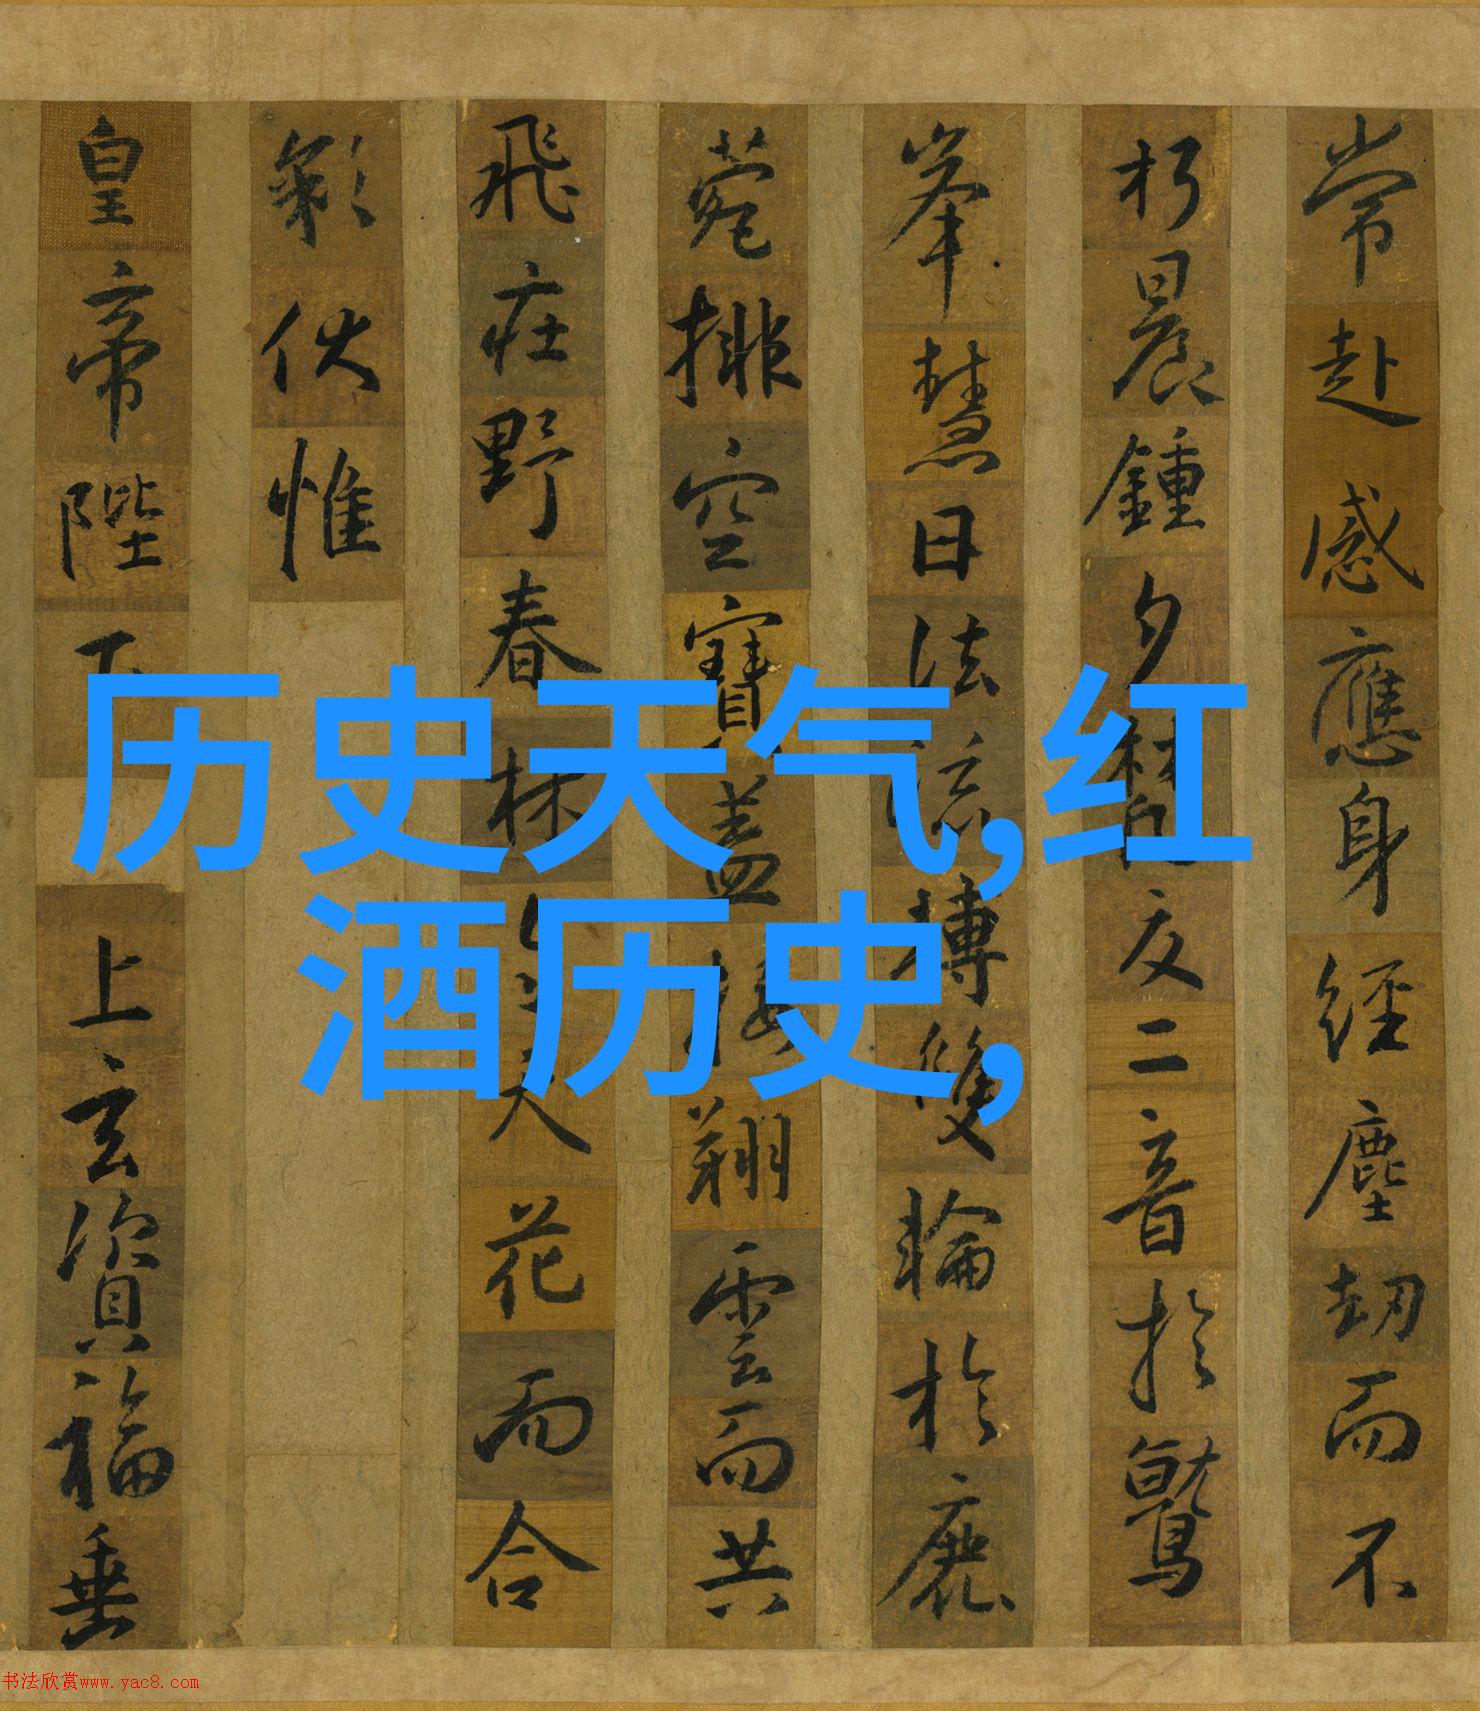 常赴感應身經塵劫而不
朽晨鍾夕梵交二音於鷲
峯慧日法流轉雙輪於鹿
菀排空寶蓋接翔雲而共
飛莊野春林天花而合
彩伏惟
皇帝陛下
上玄資福垂
历史天气,红
酒历史,
书法欣赏www.yac8.com